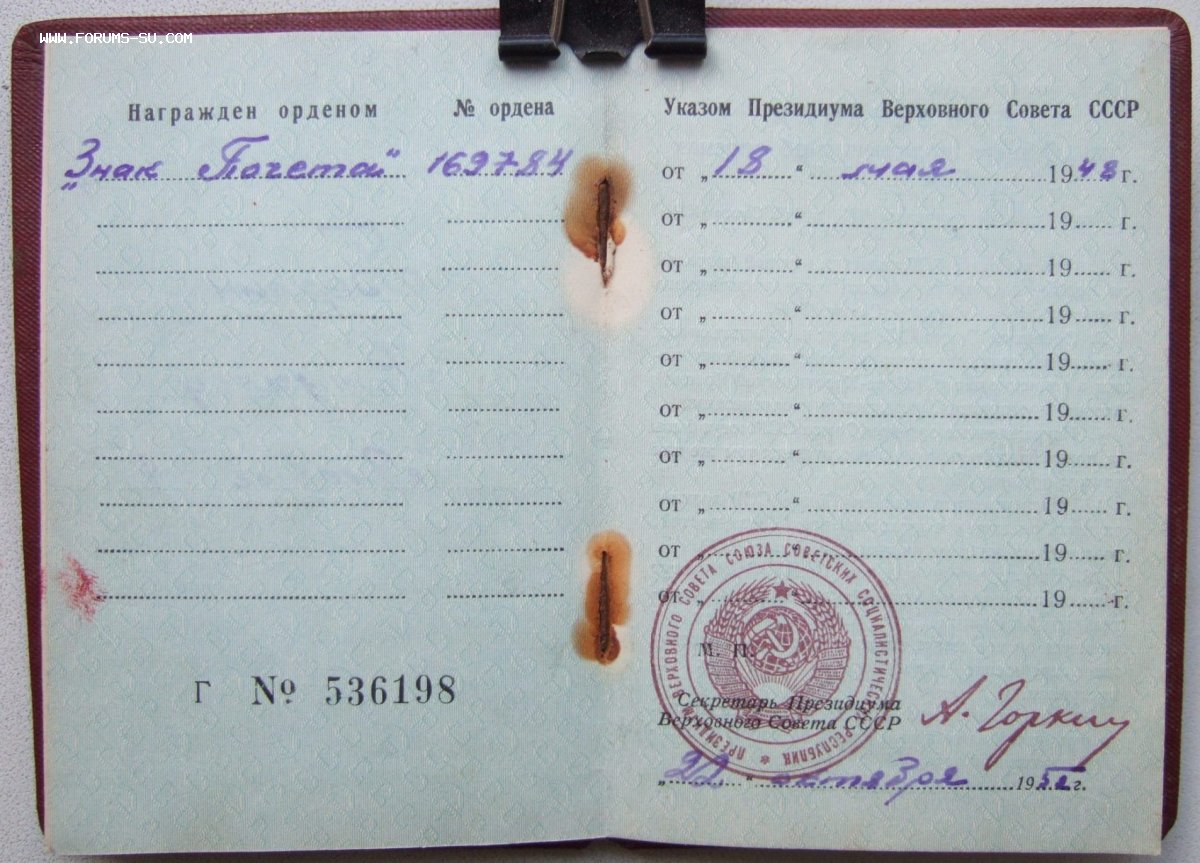 www.forums-su.com
Награжден орденом № ордена
„Знак Почета“ 169784
Г № 536198
Указом Президиума Верховного Совета СССР
от „18“ мая 1948 г.
от „ “ 19 г.
от „ “ 19 г.
от „ “ 19 г.
от „ “ 19 г.
от „ “ 19 г.
от „ “ 19 г.
от „ “ 19 г.
от „ “ 19 г.
от „ “ 19 г.
М. П.
ПРЕЗИДИУМ ВЕРХОВНОГО СОВЕТА СОЮЗА СОВЕТСКИХ СОЦИАЛИСТИЧЕСКИХ РЕСПУБЛИК
Секретарь Президиума
Верховного Совета СССР
А. Горкин
„22“ октября 19 г.